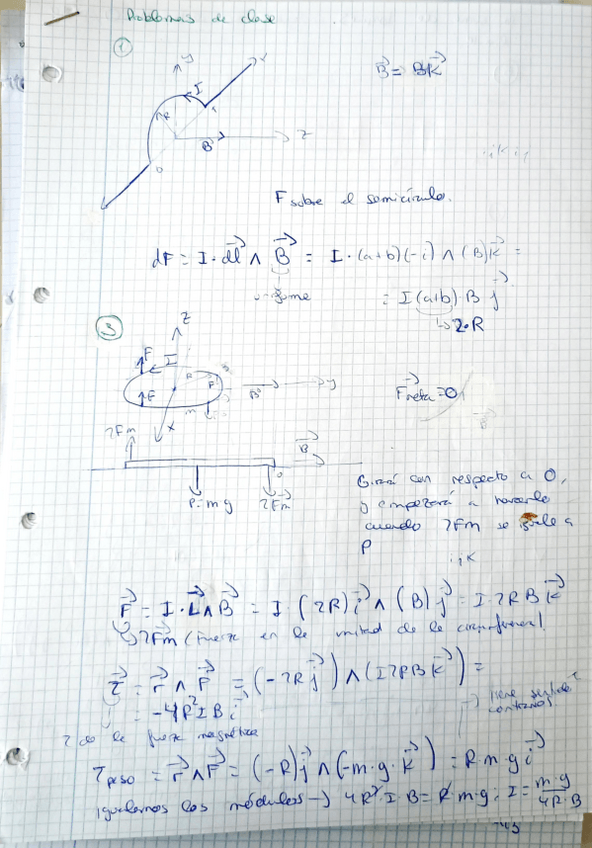 Problemas de clase
①
y
x
I
R
z
B
O
B = Bk
F sobre el semicírculo.
dF = I · dl ∧ B = I · (a+b)(-i) ∧ (B)k =
= I(a+b) · B j
↳ 2·R
③
z
F
I
R
F
B
y
F
m
x
F neta = 0
2Fm
B
O
P=mg
2Fm
Girará con respecto a O,
y empezará a hacerlo
cuando 2Fm se iguale a
P
i j k
F = I · L ∧ B = I · (2R) i ∧ (B) j = I·2RB k
↳ 2Fm (fuerza en la mitad de la circunferencia).
τ = r ∧ F = (-2R j) ∧ (I2RB k) =
= -4R²IB i
τ de la fuerza magnética
→ tiene sentido
contrario
τ peso = r ∧ F = (-R) j ∧ (-m·g·k) = R·m·g i
igualamos los módulos → 4R²·I·B = R·m·g ; I = m·g / 4R·B